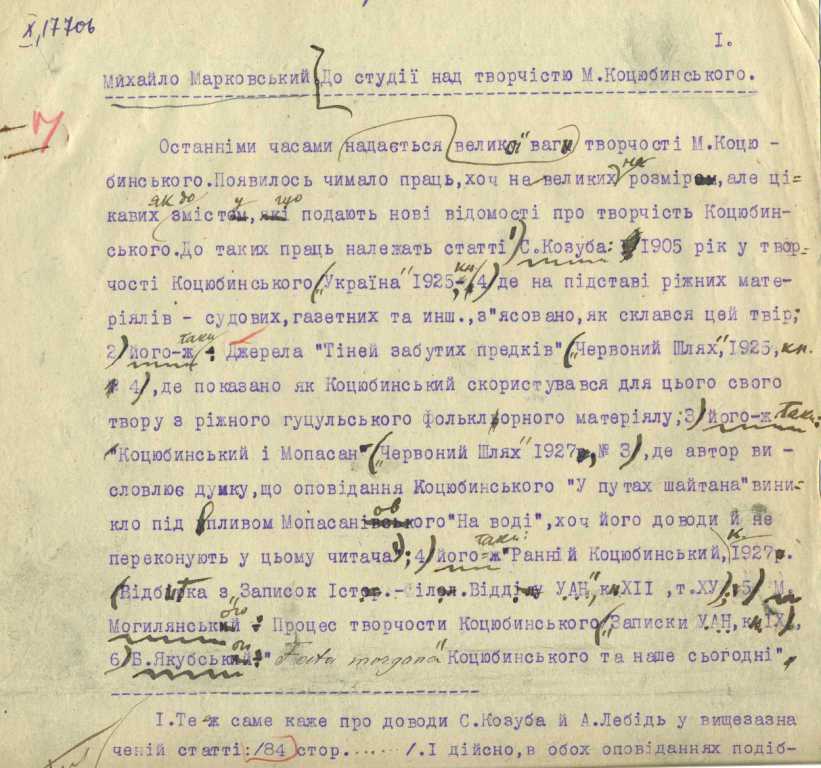 X,17706
I.
Михайло Марковський. До студії над творчістю М.Коцюбинського.
Останніми часами надається великої ваги творчості М.Коцю -
бинського.Появилось чимало праць,хоч не великих на розмір,але ці=
кавих як до змісту, що подають нові відомості про творчість Коцюбин-
ського.До таких праць належать статті 1) С.Козуба: 1905 рік у твор=
чості Коцюбинського („Україна" 1925, кн. 4) де на підставі ріжних мате-
ріялів - судових,газетних та инш.,з"ясовано,як склався цей твір;
2) його-ж таки: Джерела "Тіней забутих предків" („Червоний Шлях", 1925, кн.
4),де показано як Коцюбинський скористувався для цього свого
твору з ріжного гуцульського фольклорного матеріялу; 3) його-ж таки:
"Коцюбинський і Мопасан" („Червоний Шлях" 1927, № 3),де автор ви -
словлює думку,що оповідання Коцюбинського "У путах шайтана"вини-
кло під впливом Мопасанового "На воді",хоч його доводи й не
переконують у цьому читача 1); 4) його-ж таки: "Ранній Коцюбинський, К. 1927р.
(Відбитка з „Записок Іст.-Філ. Від. УАН", кн.XII ,т.XУ); 5) М.
Могилянського: Процес творчости Коцюбинського („Записки УАН, кн.IX),
6) Б.Якубського: "Fata morgana" Коцюбинського та наше сьогодні",
I.Те ж саме каже про доводи С.Козуба й А.Лебідь у вищезазна
ченій статті:/84 стор....../.І дійсно,в обох оповіданнях подіб-